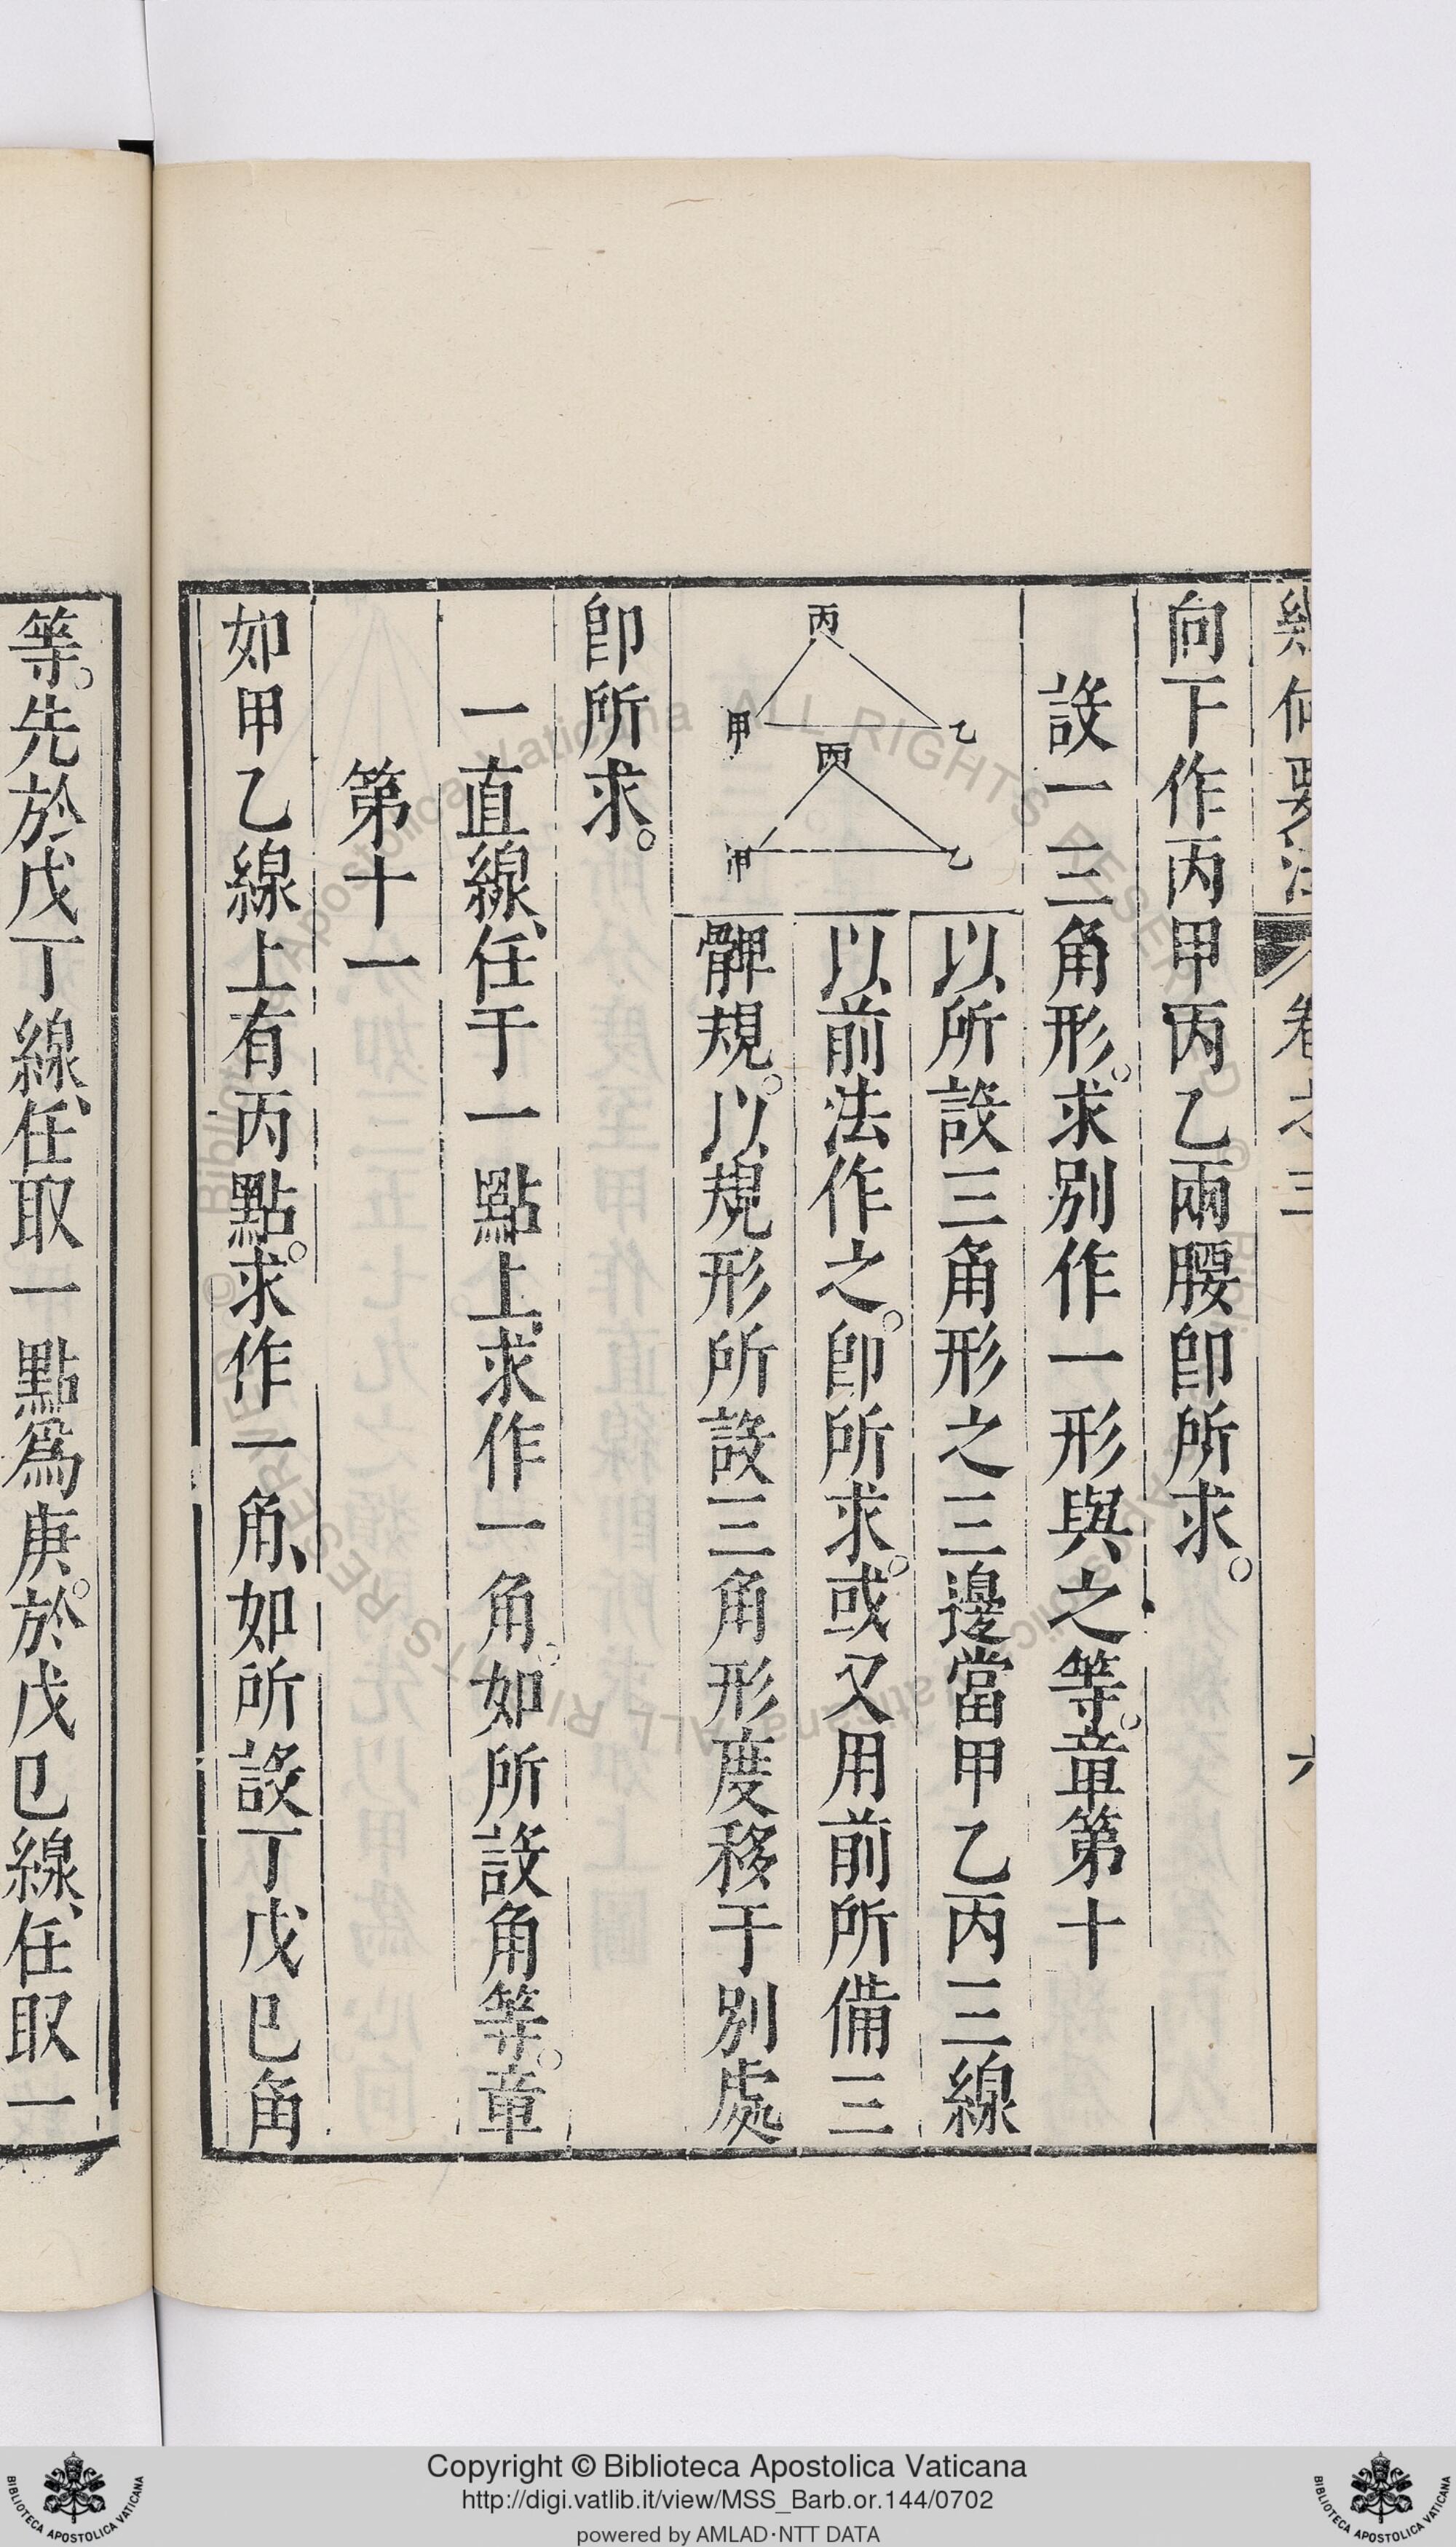 幾何要法 卷之三 六
向下作丙甲丙乙兩腰卽所求。
設一三角形。求別作一形與之等。章第十
丙
甲 乙
丙
甲 乙
以所設三角形之三邊當甲乙丙三線
以前法作之。卽所求。或又用前所備三
髀規。以規形所設三角形度移于別處
卽所求。
一直線、任于一點上、求作一角。如所設角等。章
第十一
如甲乙線上有丙點。求作一角、如所設丁戊巳角
等。先於戊丁線、任取一點爲庚。於戊巳線、任取一
© Biblioteca Apostolica Vaticana ALL RIGHTS RESERVED
© Biblioteca Apostolica Vaticana ALL RIGHTS RESERVED
Copyright © Biblioteca Apostolica Vaticana
http://digi.vatlib.it/view/MSS_Barb.or.144/0702
powered by AMLAD·NTT DATA
BIBLIOTECA APOSTOLICA VATICANA
BIBLIOTECA APOSTOLICA VATICANA